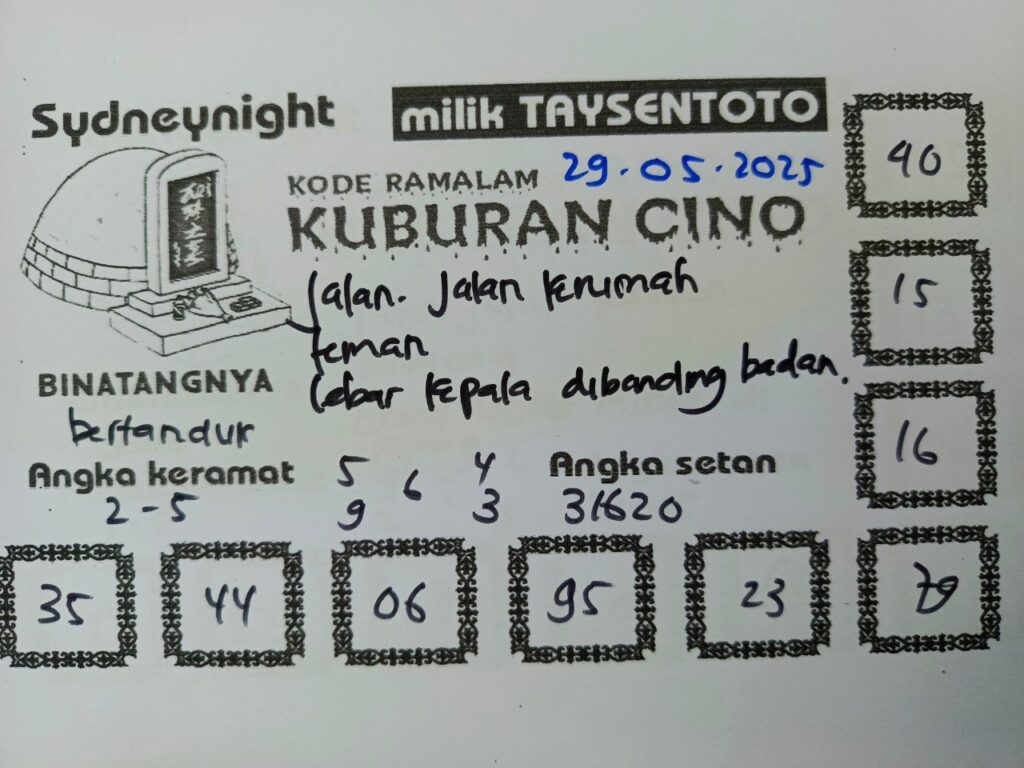 Sydneynight
milik TAYSENTOTO
KODE RAMALAM 29.05.2025
KUBURAN CINO
Jalan. Jalan kerumah
teman
Lebar kepala dibanding badan.
BINATANGNYA
bertanduk
Angka keramat
2-5
5 6 4
9 3
Angka setan
31620
40
15
16
35 44 06 95 23